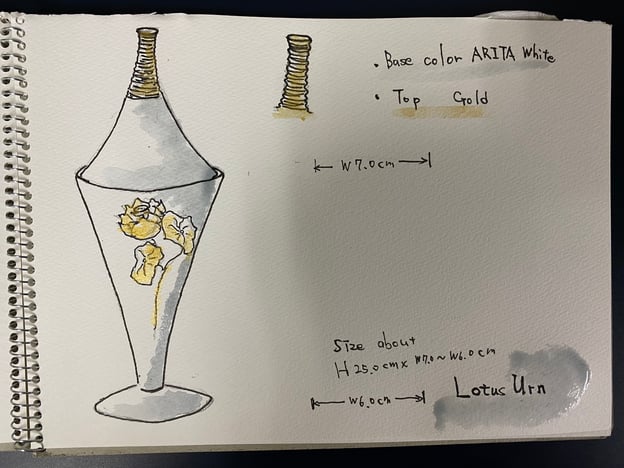 • Base color ARITA White
• Top Gold
W7.0cm
Size about
H25.0cm x W7.0~W6.0cm
W6.0cm
Lotus Urn